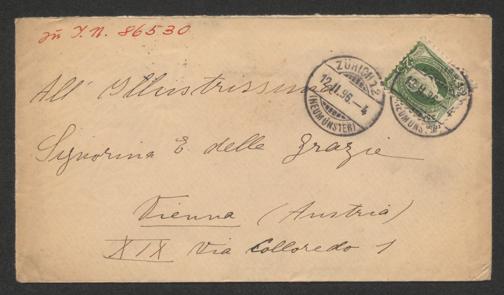 zu I.N. 86530
ZÜRICH 12
12.II.96.-4
(NEUMÜNSTER)
All' Illustrissima
Signorina E. delle Grazie
Vienna (Austria)
XIX Via Colloredo 1